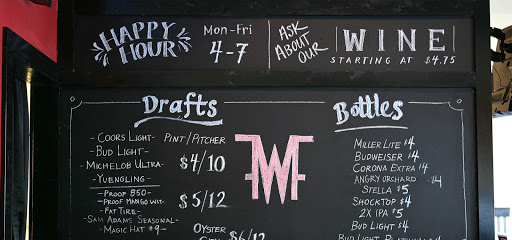 HAPPY HOUR
Mon-Fri
4-7
ASK ABOUT OUR
WINE
STARTING AT $4.75
Drafts
Pint/Pitcher
-Coors Light-
-Bud Light-
-Michelob Ultra-
$4/10
-Yuengling-
-Proof 850-
-Proof Mango Wit-
-Fat Tire-
$5/12
-Sam Adams Seasonal-
-Magic Hat #9-
Oyster
$6/12
WF
Bottles
Miller Lite $4
Budweiser $4
Corona Extra $4
Angry Orchard - $4
Stella $5
Shocktop $4
2X IPA $5
Bud Light $4
Bud Light